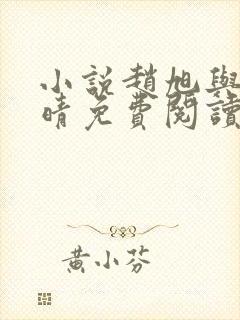 小說趙旭與
晴免費閱讀
黃小芬